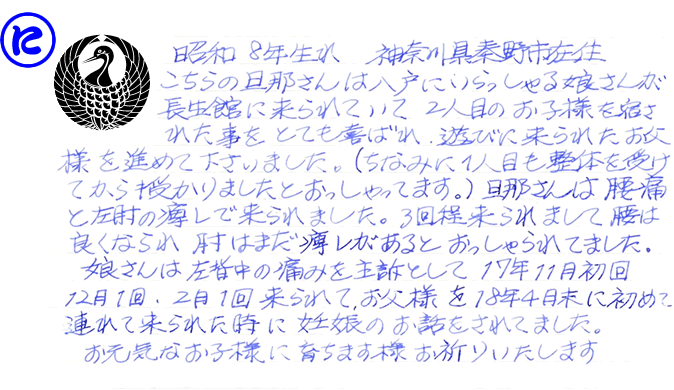 に
昭和8年生れ 神奈川県秦野市在住
こちらの旦那さんは八戸にいらっしゃる娘さんが
長生館に来られていて2人目のお子様を宿さ
れた事をとても喜ばれ、遊びに来られたお父
様を進めて下さいました。(ちなみに1人目も整体を受け
てから授かりましたとおっしゃってます。)旦那さんは腰痛
と左肘の痺レで来られました。3回程来られまして腰は
良くなられ 肘はまだ痺レがあるとおっしゃられてました。
娘さんは左背中の痛みを主訴として17年11月初回
12月1回、2月1回来られて、お父様を18年4月末に初めて
連れて来られた時に妊娠のお話をされてました。
お元気なお子様に育ちます様お祈りいたします